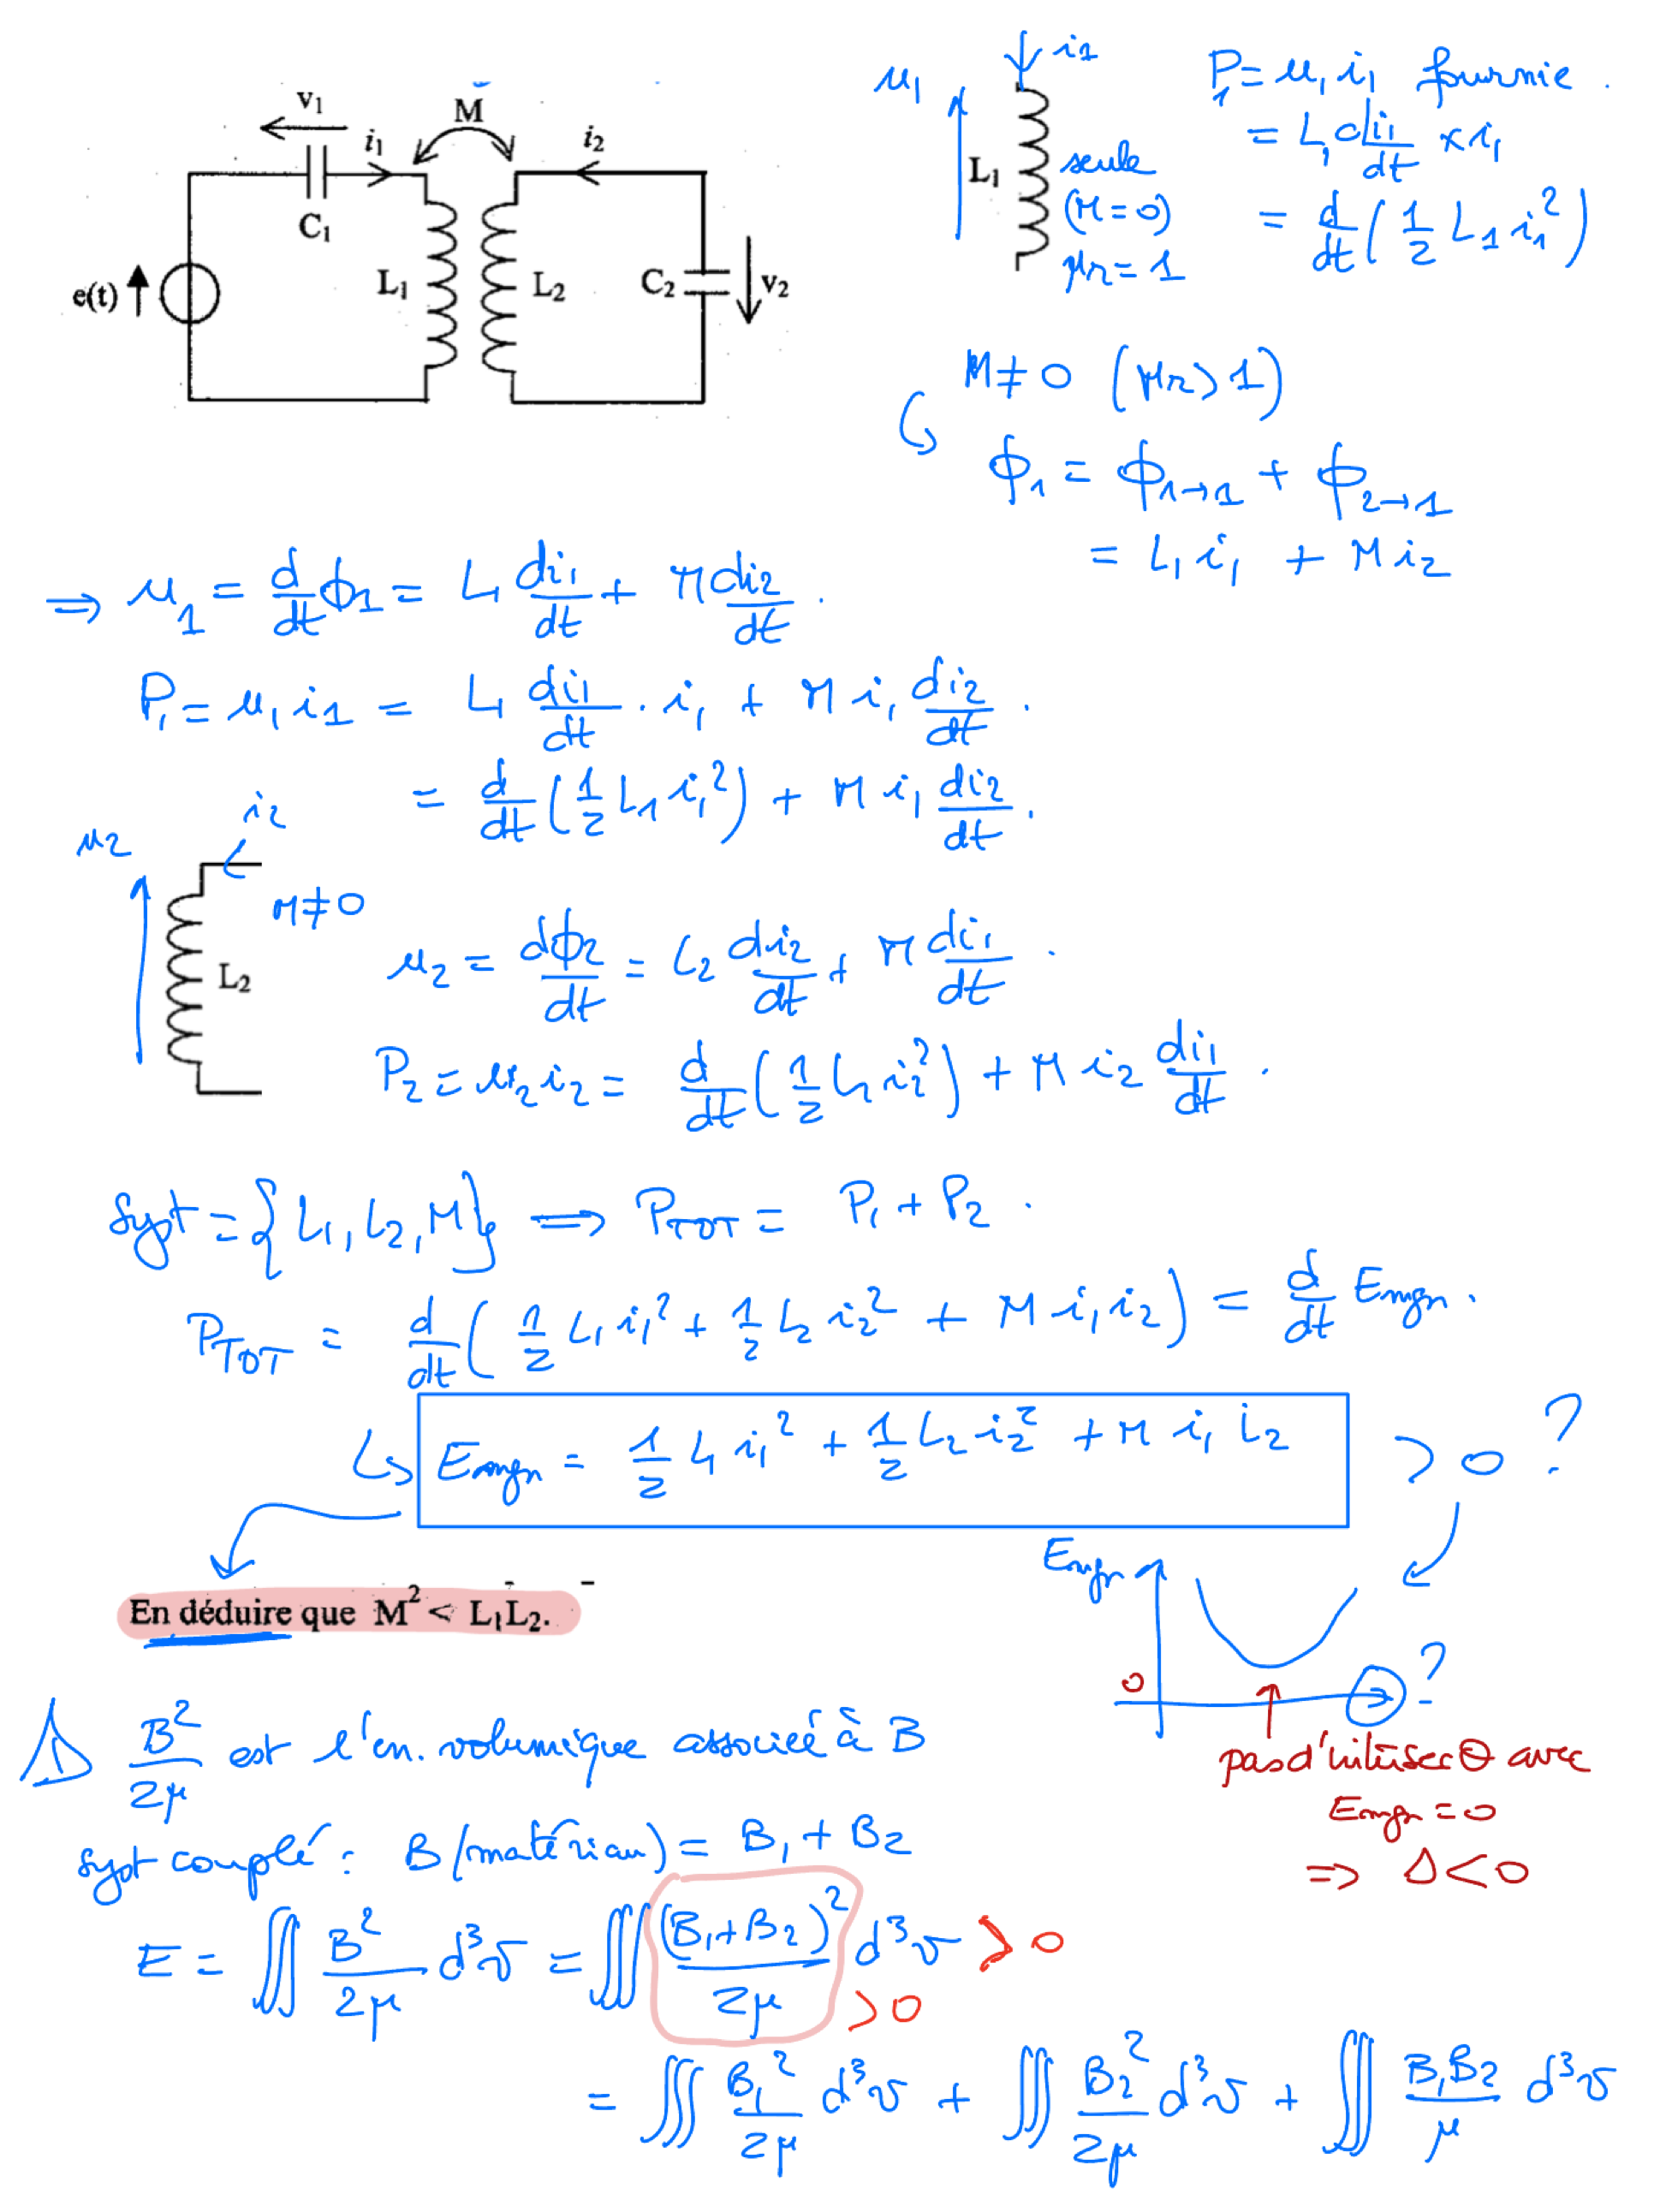 v₁
M
i₁
i₂
C₁
L₁
L₂
C₂
v₂
e(t)
u₁
i₁
L₁
seule
(M=0)
μr=1
P₁ = u₁ i₁ fournie.
= L₁ di₁/dt × i₁
= d/dt (1/2 L₁ i₁²)
M≠0 (μr>1)
ϕ₁ = ϕ₁→₁ + ϕ₂→₁
= L₁ i₁ + M i₂
⇒ u₁ = d/dt ϕ₁ = L₁ di₁/dt + M di₂/dt.
P₁ = u₁ i₁ = L₁ di₁/dt . i₁ + M i₁ di₂/dt.
= d/dt (1/2 L₁ i₁²) + M i₁ di₂/dt.
u₂
i₂
M≠0
L₂
u₂ = dϕ₂/dt = L₂ di₂/dt + M di₁/dt.
P₂ = u₂ i₂ = d/dt (1/2 L₂ i₂²) + M i₂ di₁/dt.
Syst = {L₁, L₂, M} ⟹ PTOT = P₁ + P₂.
PTOT = d/dt (1/2 L₁ i₁² + 1/2 L₂ i₂² + M i₁ i₂) = d/dt Emgn.
↳ Emgn = 1/2 L₁ i₁² + 1/2 L₂ i₂² + M i₁ i₂ > 0 ?
En déduire que M² < L₁L₂.
Emgn
0
?
pas d'intersec⊖ avec
Emgn = 0
⇒ Δ<0
⚠ B²/2μ est l'en. volumique associée à B
Syst couplé : B(matériau) = B₁ + B₂
E = ∭ B²/2μ d³v = ∭ (B₁+B₂)²/2μ d³v > 0
> 0
= ∭ B₁²/2μ d³v + ∭ B₂²/2μ d³v + ∭ B₁B₂/μ d³v